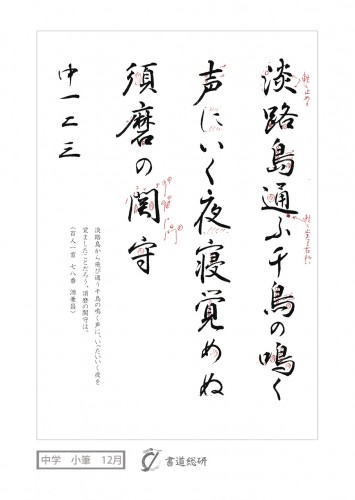 淡路島通ふ千鳥の鳴く
声にいく夜寝覚めぬ
須磨の関守
淡路島から飛び通う千鳥の鳴く声に、いったいいく夜を
覚ましたことだろう。須磨の関守は。
（百人一首 七八番 源兼昌）
中一二三
中学 小筆 12月
書道総研